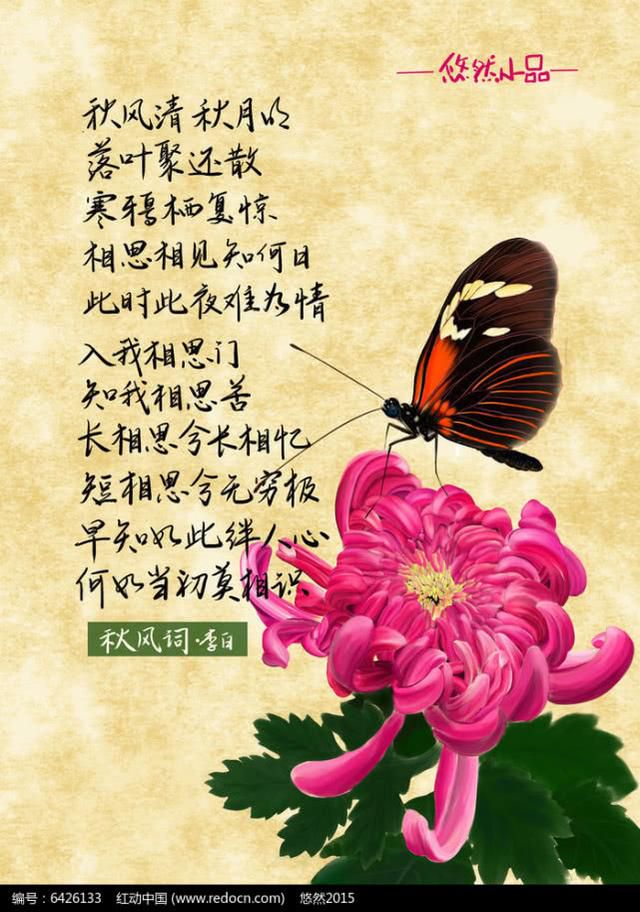 悠然小品
秋风清 秋月明
落叶聚还散
寒鸦栖复惊
相思相见知何日
此时此夜难为情
入我相思门
知我相思苦
长相思兮长相忆
短相思兮无穷极
早知如此绊人心
何如当初莫相识
秋风词·李白
编号：6426133 红动中国 (www.redocn.com) 悠然2015